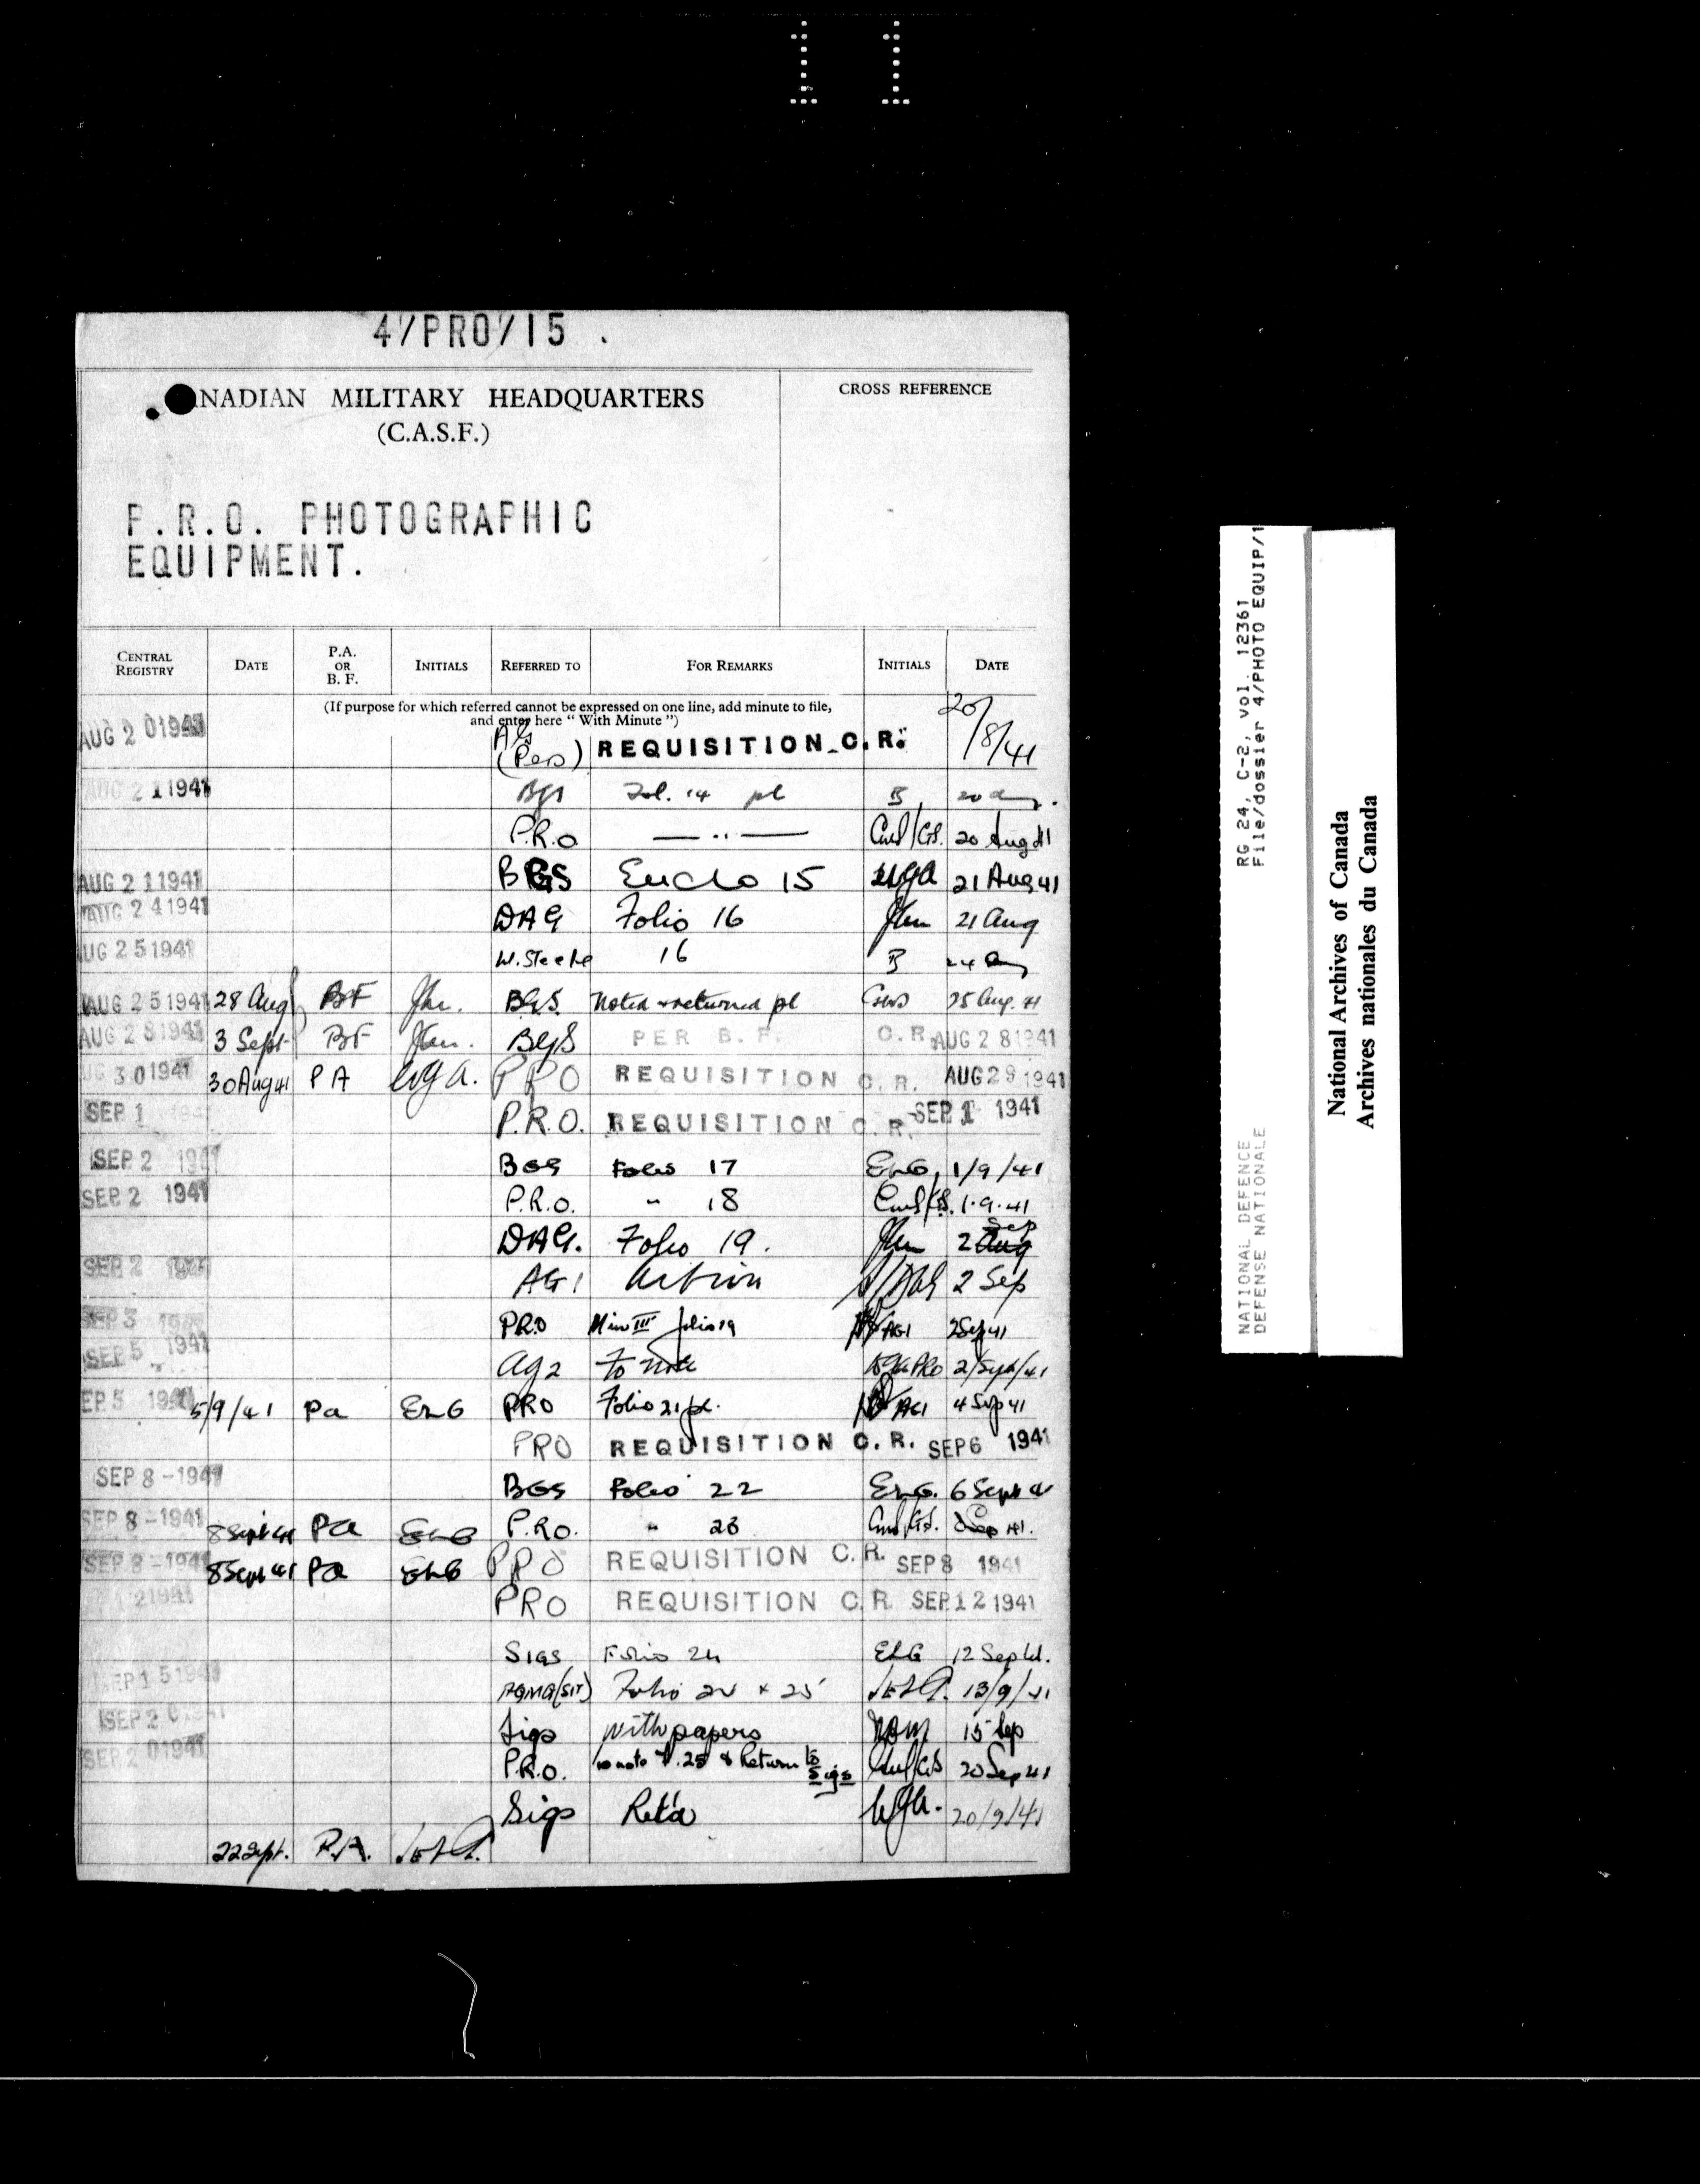 11
4/PRO/15 .
NADIAN MILITARY HEADQUARTERS
(C.A.S.F.)
CROSS REFERENCE
P.R.O. PHOTOGRAPHIC
EQUIPMENT.
CENTRAL REGISTRY DATE P.A. OR B. F. INITIALS REFERRED TO FOR REMARKS INITIALS DATE
(If purpose for which referred cannot be expressed on one line, add minute to file,
and enter here “ With Minute ”)
AUG 2 0 1941 AG (Pers) REQUISITION C.R. 20/8/41
AUG 2 1 1941 BGS Fol. 14 pl B 20
P.R.O — " — 20 Aug 41
AUG 2 1 1941 BGS Enclo 15 WGA 21 Aug 41
AUG 2 4 1941 DAG Folio 16 21 Aug
UG 2 5 1941 W. Steele 16 B
AUG 2 5 1941 28 Aug BF BGS. Noted & returned pl 25 Aug. 41
AUG 2 8 1941 3 Sept BF BGS PER B. F. C.R. AUG 2 8 1941
UG 3 0 1941 30 Aug 41 PA WGA. PRO REQUISITION C.R. AUG 29 1941
SEP 1 P.R.O. REQUISITION C.R. SEP 1 1941
SEP 2 1941 BGS Folio 17 ELG. 1/9/41
SEP 2 1941 P.R.O. " 18 1.9.41
DAG. Folio 19. 2 Aug Sep
SEP 2 AG1 Action 2 Sep
SEP 3 PRO Min III folio 19 AG1 2 Sep 41
SEP 5 1941 AG2 To note PRO 2/Sept/41
EP 5 5/9/41 Pa ELG PRO Folio 21 pl. AG1 4 Sep 41
PRO REQUISITION C.R. SEP 6 1941
SEP 8 - 1941 BGS Folio 22 ELG. 6 Sept 41
SEP 8 - 1941 8 Sept 41 Pa ELG P.R.O. " 23 Sep 41.
SEP 8 - 1941 8 Sept 41 Pa ELG PRO REQUISITION C.R. SEP 8 1941
2 1941 PRO REQUISITION C.R. SEP 12 1941
SIGS Folio 24 ELG 12 Sept 41.
SEP 1 5 1941 AQMG(SIT) Folio 24 & 25 13/9/41
SEP 2 0 1941 Sigs with papers 15 Sep
SEP 2 0 1941 P.R.O. to note f. 25 & Return to Sigs 20 Sep 41
Sigs Ret'd WGA. 20/9/41
22 Sept. P.A.
RG 24, C-2, vol. 12361
File/dossier 4/PHOTO EQUIP/1
NATIONAL DEFENCE
DEFENSE NATIONALE
National Archives of Canada
Archives nationales du Canada